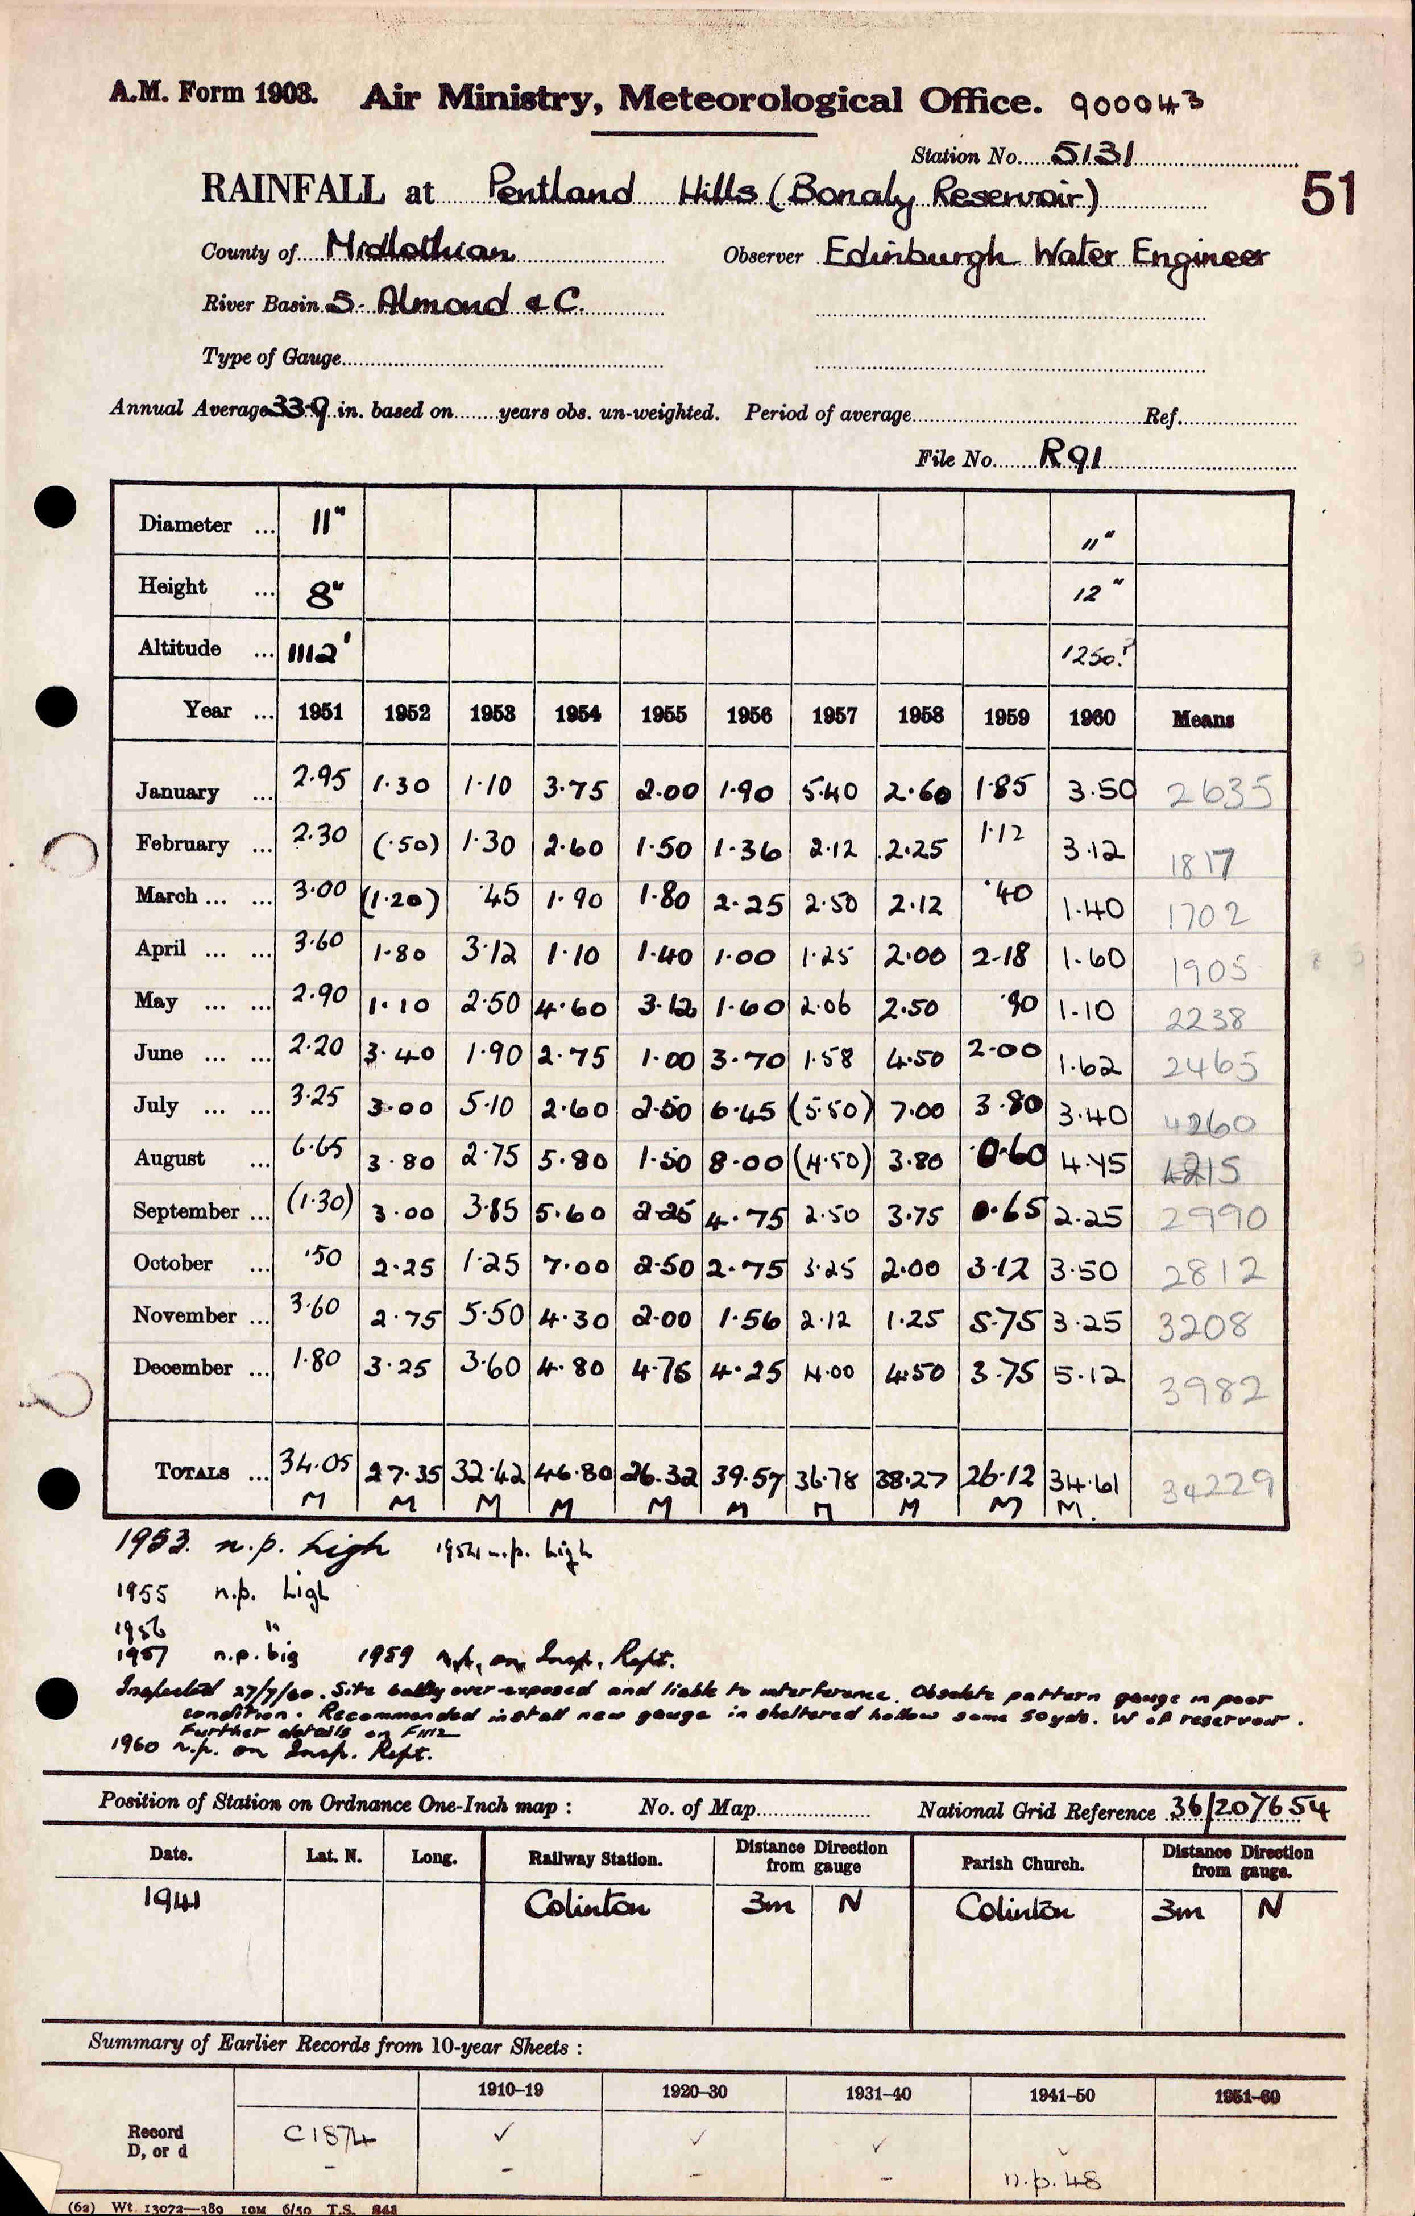 A.M. Form 1903. Air Ministry, Meteorological Office. 900043
Station No. 5131
RAINFALL at Pentland Hills (Bonaly Reservoir) 51
County of Midlothian Observer Edinburgh Water Engineer
River Basin S. Almond & C.
Type of Gauge
Annual Average 33.9 in. based on years obs. un-weighted. Period of average Ref.
File No. R91
Diameter ... 11" 11"
Height ... 8" 12"
Altitude ... 1112' 1250?
Year ... 1951 1952 1953 1954 1955 1956 1957 1958 1959 1960 Means
January ... 2.95 1.30 1.10 3.75 2.00 1.90 5.40 2.60 1.85 3.50 2635
February ... 2.30 (.50) 1.30 2.60 1.50 1.36 2.12 2.25 1.12 3.12 1817
March ... ... 3.00 (1.20) .45 1.90 1.80 2.25 2.50 2.12 .40 1.40 1702
April ... ... 3.60 1.80 3.12 1.10 1.40 1.00 1.25 2.00 2.18 1.60 1905
May ... ... 2.90 1.10 2.50 4.60 3.12 1.60 2.06 2.50 .90 1.10 2238
June ... ... 2.20 3.40 1.90 2.75 1.00 3.70 1.58 4.50 2.00 1.62 2465
July ... ... 3.25 3.00 5.10 2.60 2.50 6.45 (5.50) 7.00 3.80 3.40 4260
August ... 6.65 3.80 2.75 5.80 1.50 8.00 (4.50) 3.80 0.60 4.45 4215
September ... (1.30) 3.00 3.85 5.60 2.25 4.75 2.50 3.75 0.65 2.25 2990
October ... .50 2.25 1.25 7.00 2.50 2.75 3.25 2.00 3.12 3.50 2812
November ... 3.60 2.75 5.50 4.30 2.00 1.56 2.12 1.25 5.75 3.25 3208
December ... 1.80 3.25 3.60 4.80 4.75 4.25 4.00 4.50 3.75 5.12 3982
TOTALS ... 34.05 27.35 32.42 46.80 26.32 39.57 36.78 38.27 26.12 34.61 34229
M M M M M M M M M M.
1953. n.p. high 1954 n.p. high
1955 n.p. high
1956 "
1957 n.p. big 1959 n.p. on Insp. Rept.
Inspected 27/7/60. Site badly over-exposed and liable to interference. Obsolete pattern gauge in poor
condition. Recommended install new gauge in sheltered hollow some 50 yds. W of reservoir.
Further details on
1960 n.p. on Insp. Rept.
Position of Station on Ordnance One-Inch map : No. of Map National Grid Reference 36/207654
Date. Lat. N. Long. Railway Station. Distance Direction from gauge Parish Church. Distance Direction from gauge.
1941 Colinton 3m N Colinton 3m N
Summary of Earlier Records from 10-year Sheets :
1910–19 1920–30 1931–40 1941–50 1951–60
Record C1874 ✓ ✓ ✓ ✓
D, or d – – – – n.p. 48
(62) Wt. 13072—389 10M 6/50 T.S. 848